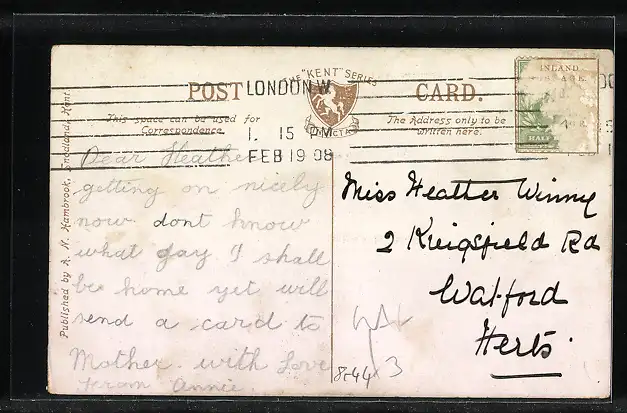 THE "KENT" SERIES
POST CARD.
INVICTA
LONDON. W.
1. 15 PM
FEB 19 08
This space can be used for
Correspondence.
The Address only to be
written here.
INLAND
HALF
Published by A. N. Hambrook, Snodland, Kent.
Dear Heather
getting on nicely
now dont know
what day I shall
be home yet will
send a card to
Mother. with love
from Annie.
Miss Heather Winny
2 Kingsfield Rd
Watford
Herts.
8-44 3